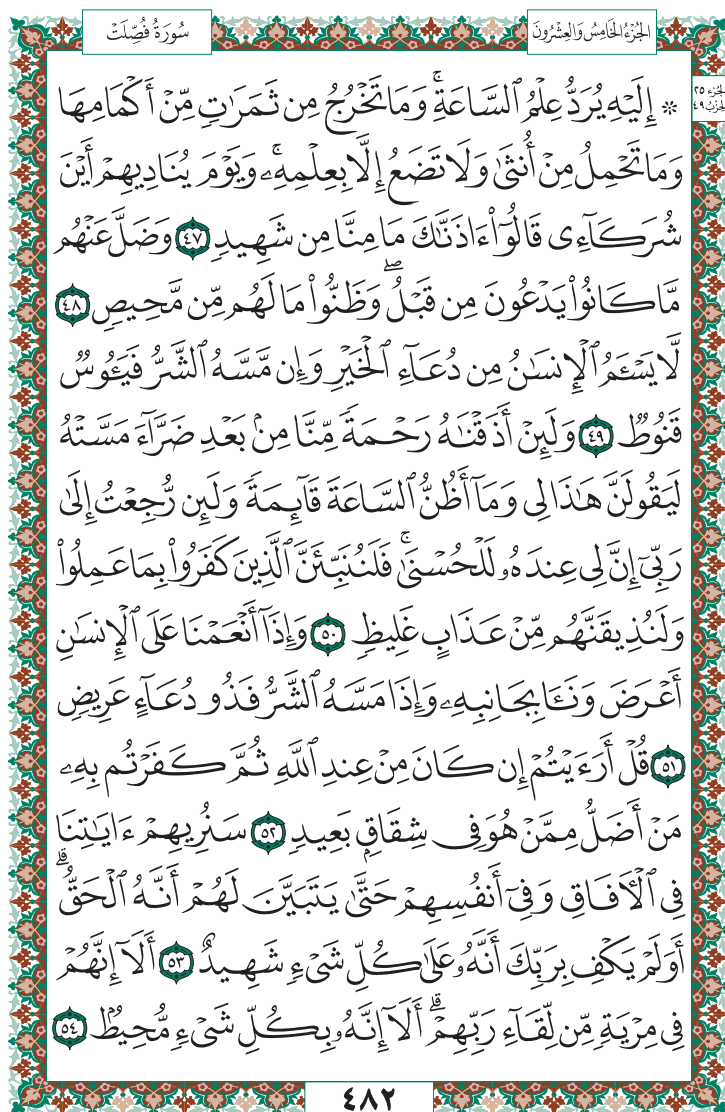 سُورَةُ فُصِّلَتْ
الجُزْءُ الخَامِسُ وَالعِشْرُونَ
الجزء ٢٥
الحزب ٤٩
۞ إِلَيْهِ يُرَدُّ عِلْمُ ٱلسَّاعَةِۚ وَمَا تَخْرُجُ مِن ثَمَرَٰتٍ مِّنْ أَكْمَامِهَا
وَمَا تَحْمِلُ مِنْ أُنثَىٰ وَلَا تَضَعُ إِلَّا بِعِلْمِهِۦۚ وَيَوْمَ يُنَادِيهِمْ أَيْنَ
شُرَكَآءِى قَالُوٓا۟ ءَاذَنَّٰكَ مَا مِنَّا مِن شَهِيدٍ ٤٧ وَضَلَّ عَنْهُم
مَّا كَانُوا۟ يَدْعُونَ مِن قَبْلُۖ وَظَنُّوا۟ مَا لَهُم مِّن مَّحِيصٍ ٤٨
لَّا يَسْـَٔمُ ٱلْإِنسَٰنُ مِن دُعَآءِ ٱلْخَيْرِ وَإِن مَّسَّهُ ٱلشَّرُّ فَيَـُٔوسٌ
قَنُوطٌ ٤٩ وَلَئِنْ أَذَقْنَٰهُ رَحْمَةً مِّنَّا مِنۢ بَعْدِ ضَرَّآءَ مَسَّتْهُ
لَيَقُولَنَّ هَٰذَا لِى وَمَآ أَظُنُّ ٱلسَّاعَةَ قَآئِمَةً وَلَئِن رُّجِعْتُ إِلَىٰ
رَبِّىٓ إِنَّ لِى عِندَهُۥ لَلْحُسْنَىٰۚ فَلَنُنَبِّئَنَّ ٱلَّذِينَ كَفَرُوا۟ بِمَا عَمِلُوا۟
وَلَنُذِيقَنَّهُم مِّنْ عَذَابٍ غَلِيظٍ ٥٠ وَإِذَآ أَنْعَمْنَا عَلَى ٱلْإِنسَٰنِ
أَعْرَضَ وَنَـَٔا بِجَانِبِهِۦ وَإِذَا مَسَّهُ ٱلشَّرُّ فَذُو دُعَآءٍ عَرِيضٍ
٥١ قُلْ أَرَءَيْتُمْ إِن كَانَ مِنْ عِندِ ٱللَّهِ ثُمَّ كَفَرْتُم بِهِۦ
مَنْ أَضَلُّ مِمَّنْ هُوَ فِى شِقَاقٍۭ بَعِيدٍ ٥٢ سَنُرِيهِمْ ءَايَٰتِنَا
فِى ٱلْءَافَاقِ وَفِىٓ أَنفُسِهِمْ حَتَّىٰ يَتَبَيَّنَ لَهُمْ أَنَّهُ ٱلْحَقُّۗ
أَوَلَمْ يَكْفِ بِرَبِّكَ أَنَّهُۥ عَلَىٰ كُلِّ شَىْءٍ شَهِيدٌ ٥٣ أَلَآ إِنَّهُمْ
فِى مِرْيَةٍ مِّن لِّقَآءِ رَبِّهِمْۗ أَلَآ إِنَّهُۥ بِكُلِّ شَىْءٍ مُّحِيطٌۢ ٥٤
٤٨٢